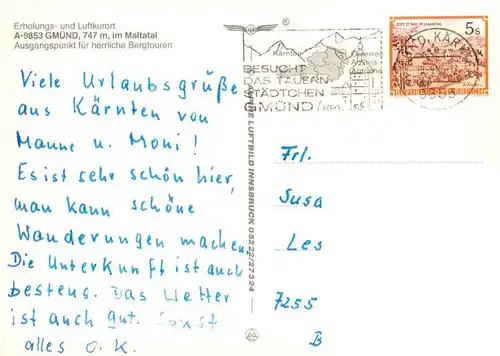 Erholungs- und Luftkurort
A-9853 GMÜND, 747 m, im Maltatal
Ausgangspunkt für herrliche Bergtouren
Viele Urlaubsgrüße
aus Kärnten von
Manne u. Moni!
Es ist sehr schön hier,
man kann schöne
Wanderungen machen.
Die Unterkunft ist auch
bestens. Das Wetter
ist auch gut. Sonst
alles O.K.
®
Kärnten
Österreich
Austria
Autriche
BESUCHT
DAS TAUERN-
STÄDTCHEN
GMÜND/
LUFTBILD INNSBRUCK 05222/27324
STIFT ST. PAUL IM LAVANTTAL
5s
REPUBLIK ÖSTERREICH
Frl.
Susa
Les
7255
B